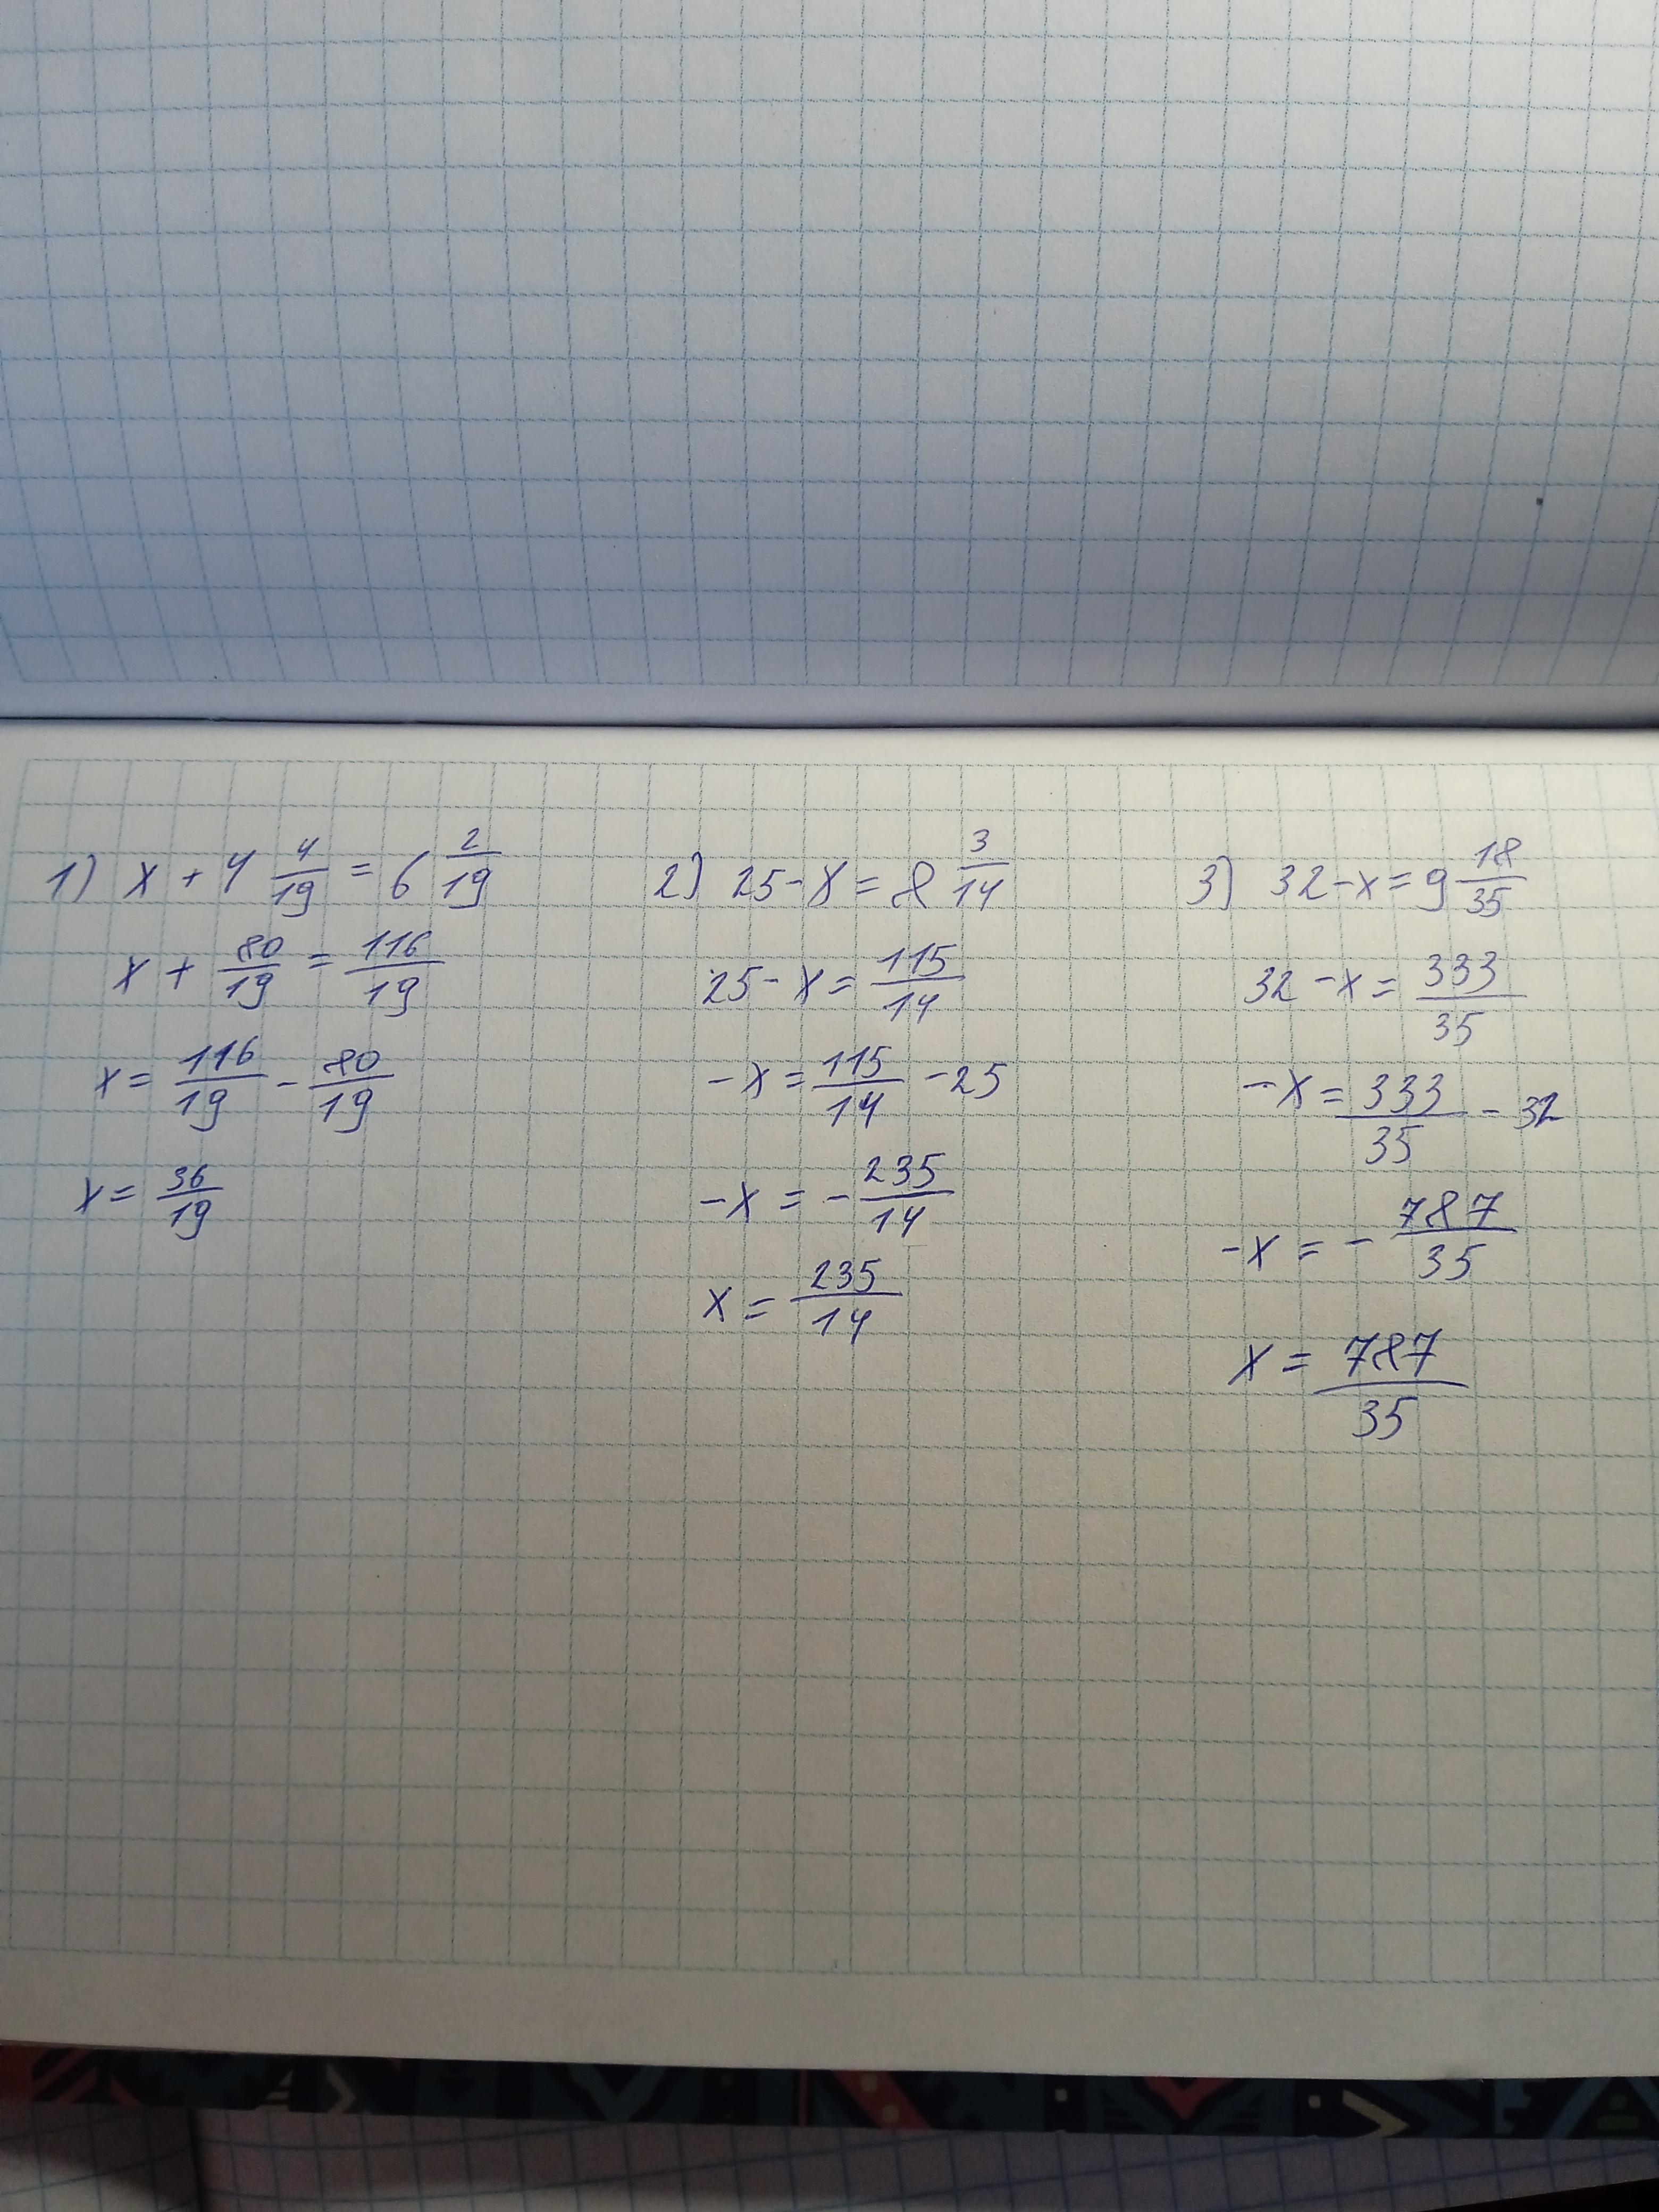 1) x + 4 4/19 = 6 2/19
x + 80/19 = 116/19
x = 116/19 - 80/19
x = 36/19
2) 25 - x = 8 3/14
25 - x = 115/14
- x = 115/14 - 25
- x = - 235/14
x = 235/14
3) 32 - x = 9 18/35
32 - x = 333/35
- x = 333/35 - 32
- x = - 787/35
x = 787/35